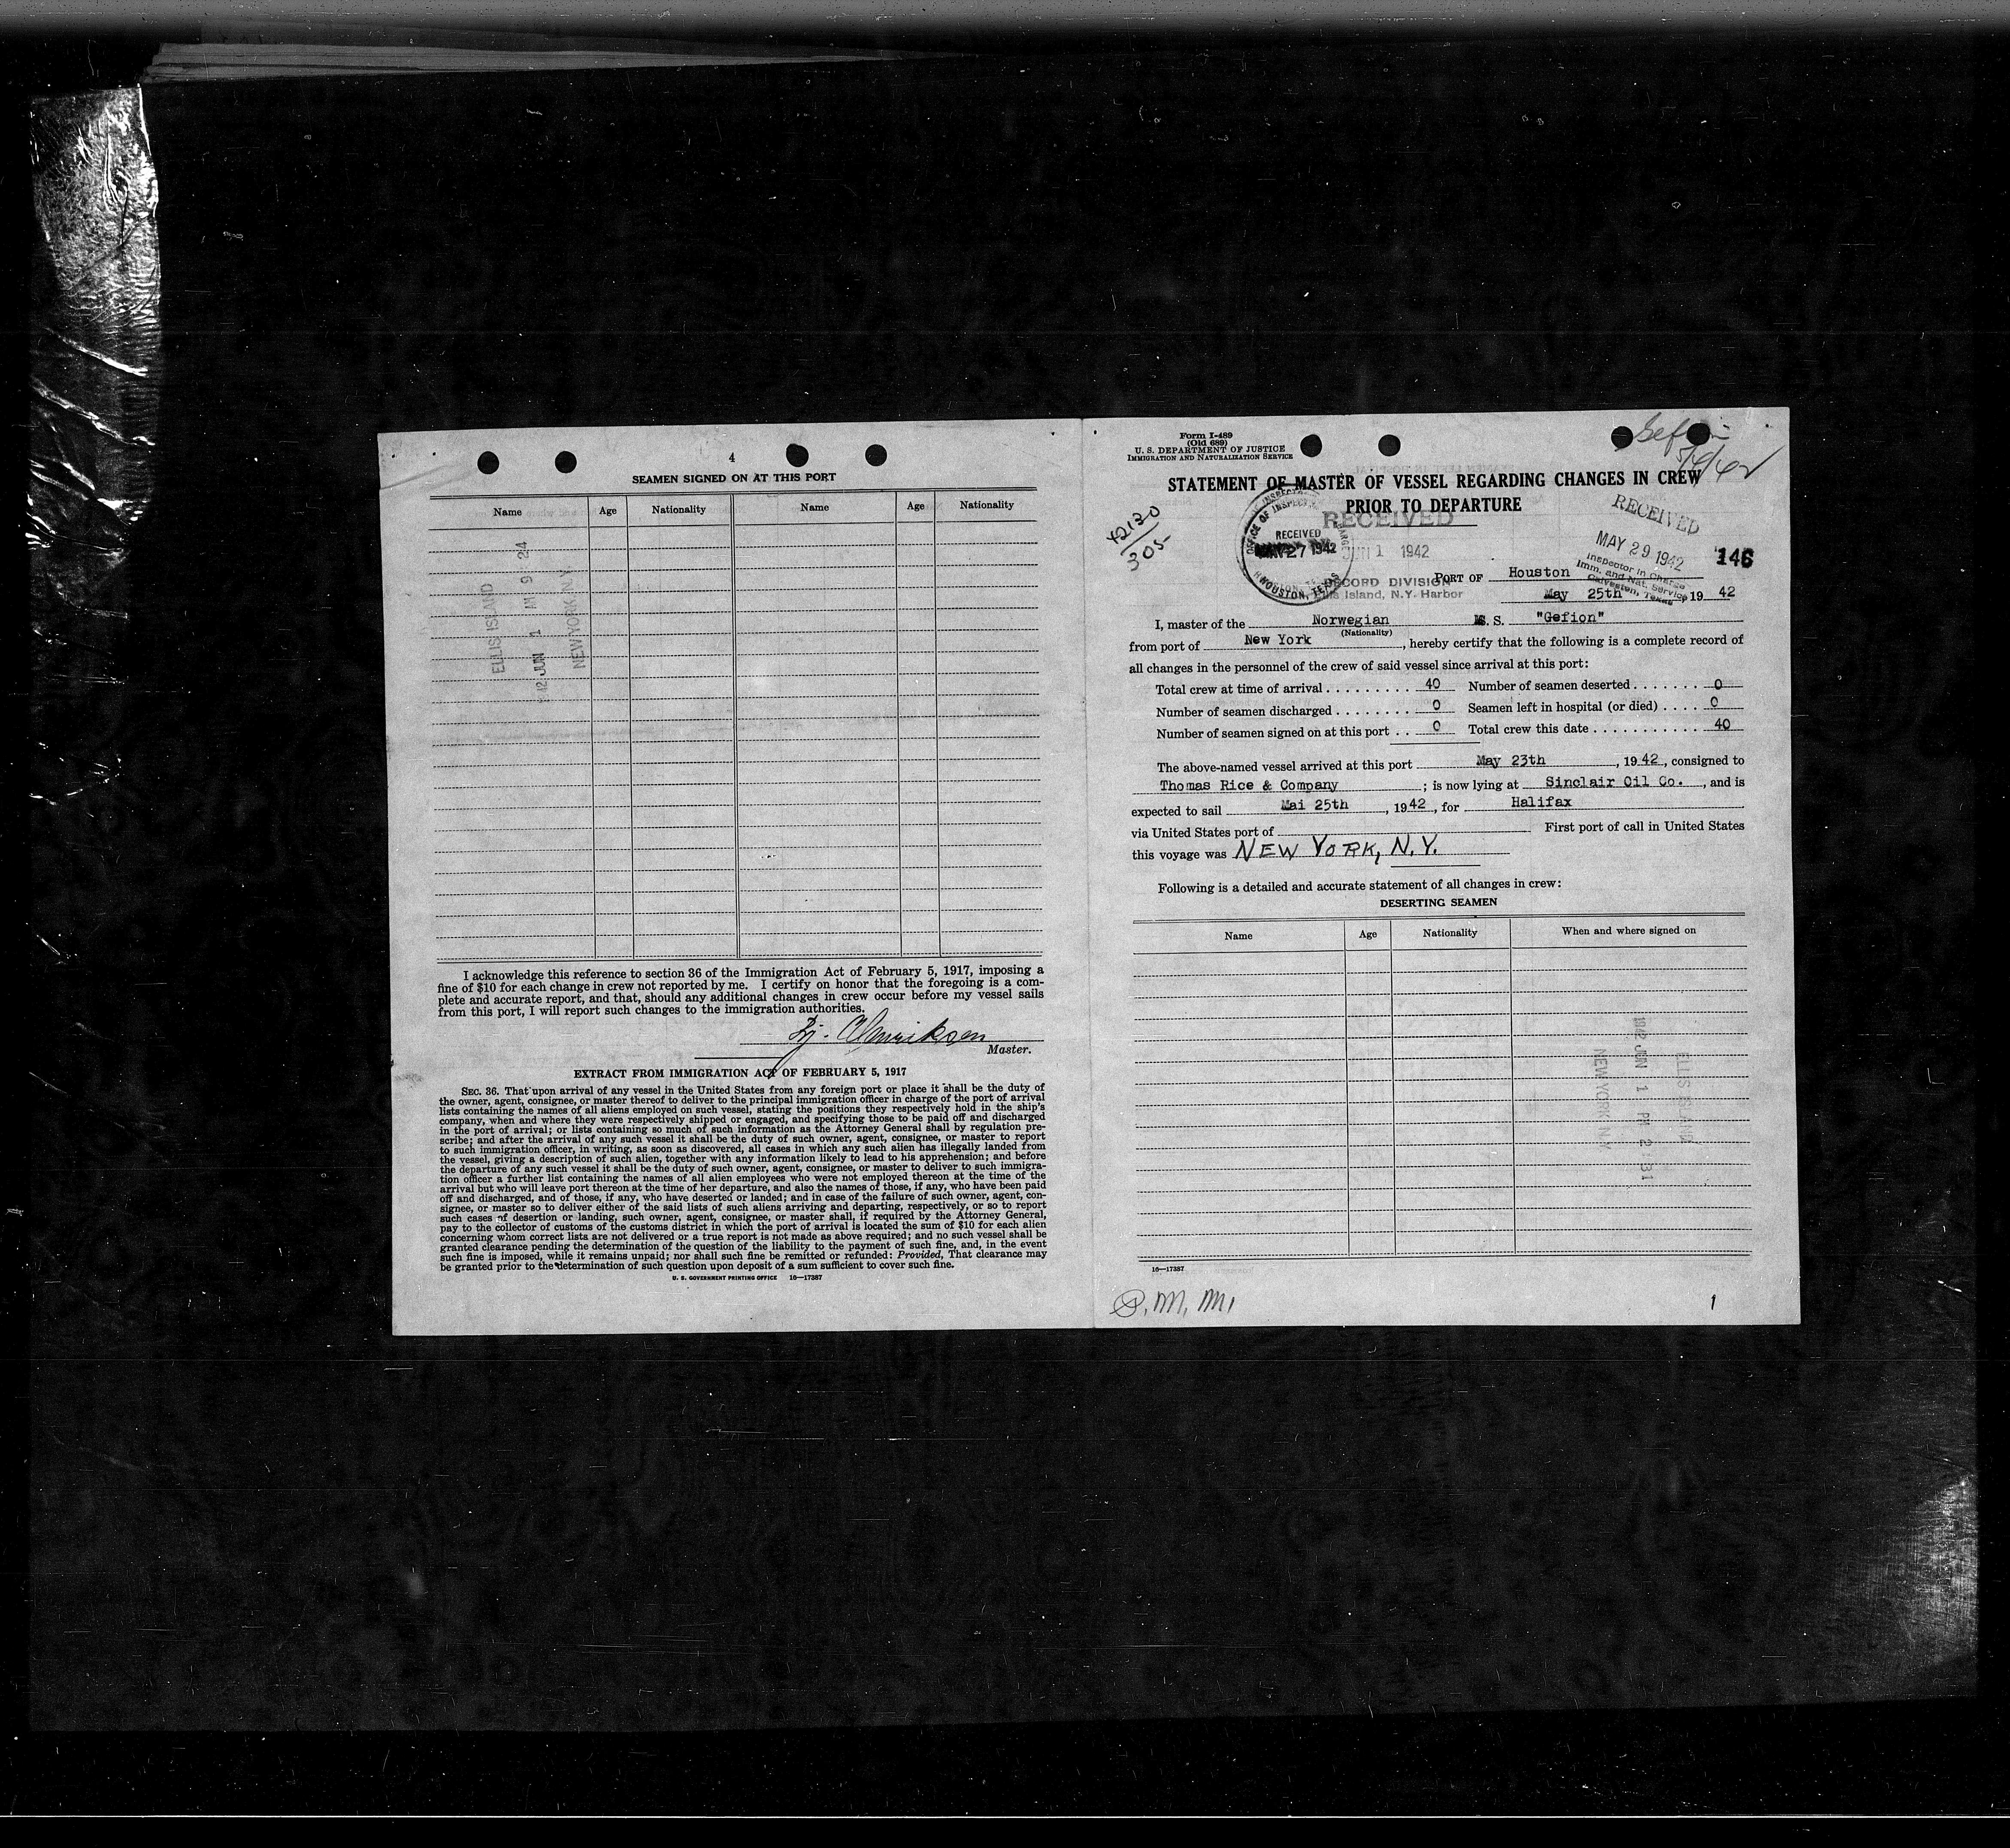 4
SEAMEN SIGNED ON AT THIS PORT
Name Age Nationality Name Age Nationality
ELLIS ISLAND
'42 JUN 1 AM 9 24
NEW YORK, N.Y.
I acknowledge this reference to section 36 of the Immigration Act of February 5, 1917, imposing a
fine of $10 for each change in crew not reported by me. I certify on honor that the foregoing is a com-
plete and accurate report, and that, should any additional changes in crew occur before my vessel sails
from this port, I will report such changes to the immigration authorities.
Bj. Henriksen
Master.
EXTRACT FROM IMMIGRATION ACT OF FEBRUARY 5, 1917
SEC. 36. That upon arrival of any vessel in the United States from any foreign port or place it shall be the duty of
the owner, agent, consignee, or master thereof to deliver to the principal immigration officer in charge of the port of arrival
lists containing the names of all aliens employed on such vessel, stating the positions they respectively hold in the ship's
company, when and where they were respectively shipped or engaged, and specifying those to be paid off and discharged
in the port of arrival; or lists containing so much of such information as the Attorney General shall by regulation pre-
scribe; and after the arrival of any such vessel it shall be the duty of such owner, agent, consignee, or master to report
to such immigration officer, in writing, as soon as discovered, all cases in which any such alien has illegally landed from
the vessel, giving a description of such alien, together with any information likely to lead to his apprehension; and before
the departure of any such vessel it shall be the duty of such owner, agent, consignee, or master to deliver to such immigra-
tion officer a further list containing the names of all alien employees who were not employed thereon at the time of the
arrival but who will leave port thereon at the time of her departure, and also the names of those, if any, who have been paid
off and discharged, and of those, if any, who have deserted or landed; and in case of the failure of such owner, agent, con-
signee, or master so to deliver either of the said lists of such aliens arriving and departing, respectively, or so to report
such cases of desertion or landing, such owner, agent, consignee, or master shall, if required by the Attorney General,
pay to the collector of customs of the customs district in which the port of arrival is located the sum of $10 for each alien
concerning whom correct lists are not delivered or a true report is not made as above required; and no such vessel shall be
granted clearance pending the determination of the question of the liability to the payment of such fine, and, in the event
such fine is imposed, while it remains unpaid; nor shall such fine be remitted or refunded: Provided, That clearance may
be granted prior to the determination of such question upon deposit of a sum sufficient to cover such fine.
U. S. GOVERNMENT PRINTING OFFICE 16—17387
Form I-489
(Old 689)
U. S. DEPARTMENT OF JUSTICE
IMMIGRATION AND NATURALIZATION SERVICE
Gefion
5/6/42
STATEMENT OF MASTER OF VESSEL REGARDING CHANGES IN CREW
PRIOR TO DEPARTURE
42130
305
RECEIVED
JUN 1 1942
RECORD DIVISION
Ellis Island, N.Y. Harbor
OFFICE OF INSPECTOR
RECEIVED
27 1942
HOUSTON, TEXAS
RECEIVED
MAY 29 1942
Inspector in Charge
Imm. and Nat. Service
Galveston, Texas
146
PORT OF Houston
May 25th, 19 42
I, master of the Norwegian M.S. "Gefion"
(Nationality)
from port of New York, hereby certify that the following is a complete record of
all changes in the personnel of the crew of said vessel since arrival at this port:
Total crew at time of arrival . . . . . . . . . 40 Number of seamen deserted . . . . . . . 0
Number of seamen discharged . . . . . . . . 0 Seamen left in hospital (or died) . . . . 0
Number of seamen signed on at this port . . 0 Total crew this date . . . . . . . . . . . 40
The above-named vessel arrived at this port May 23th, 1942, consigned to
Thomas Rice & Company; is now lying at Sinclair Oil Co., and is
expected to sail Mai 25th, 1942, for Halifax
via United States port of First port of call in United States
this voyage was NEW YORK, N.Y.
Following is a detailed and accurate statement of all changes in crew:
DESERTING SEAMEN
Name Age Nationality When and where signed on
ELLIS ISLAND
1942 JUN 1 PM 2 31
NEW YORK N.Y.
16—17387
P. M. M.
1